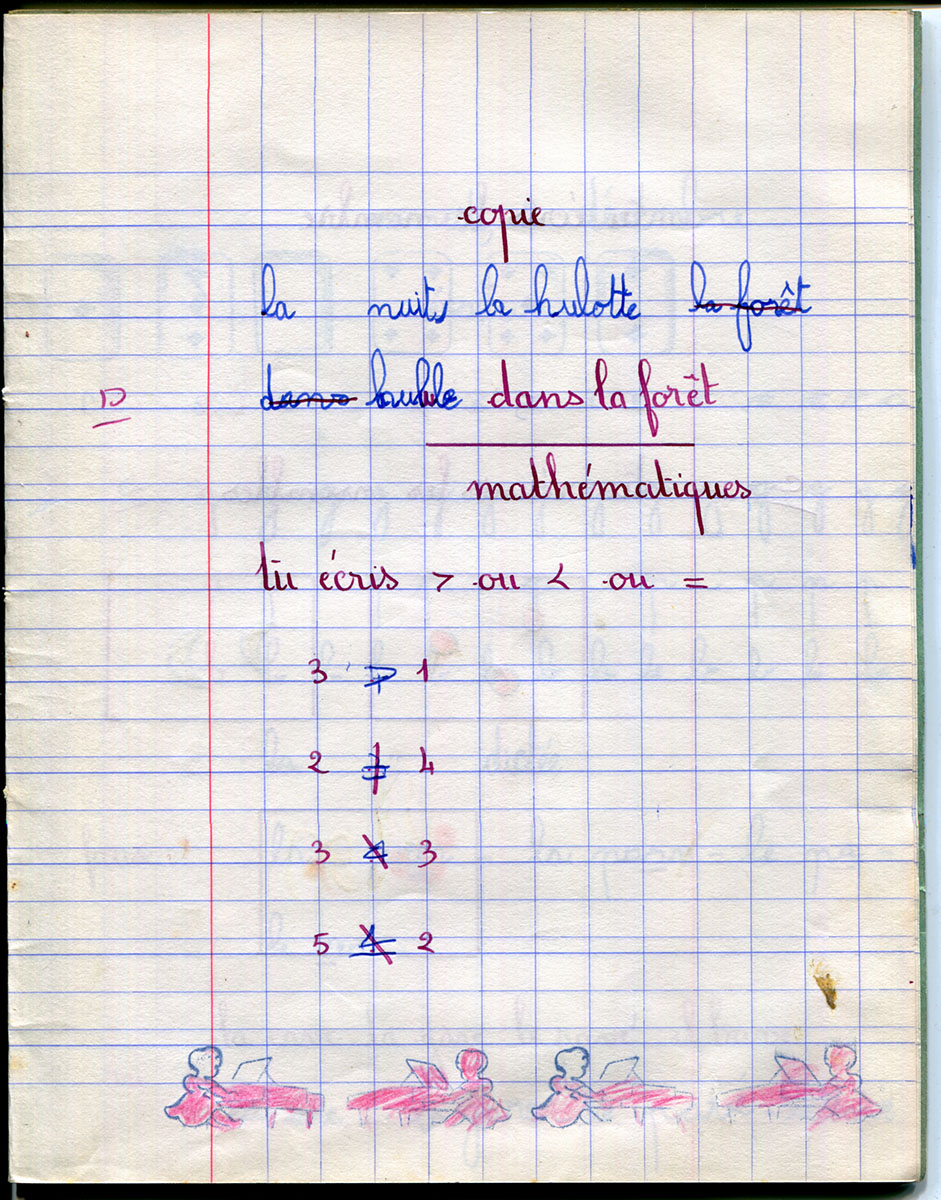 copie
la nuits la hulotte la forêt
dans hulule dans la forêt
mathématiques
tu écris > ou < ou =
3 > 1
2 = 4
3 < 3
5 < 2